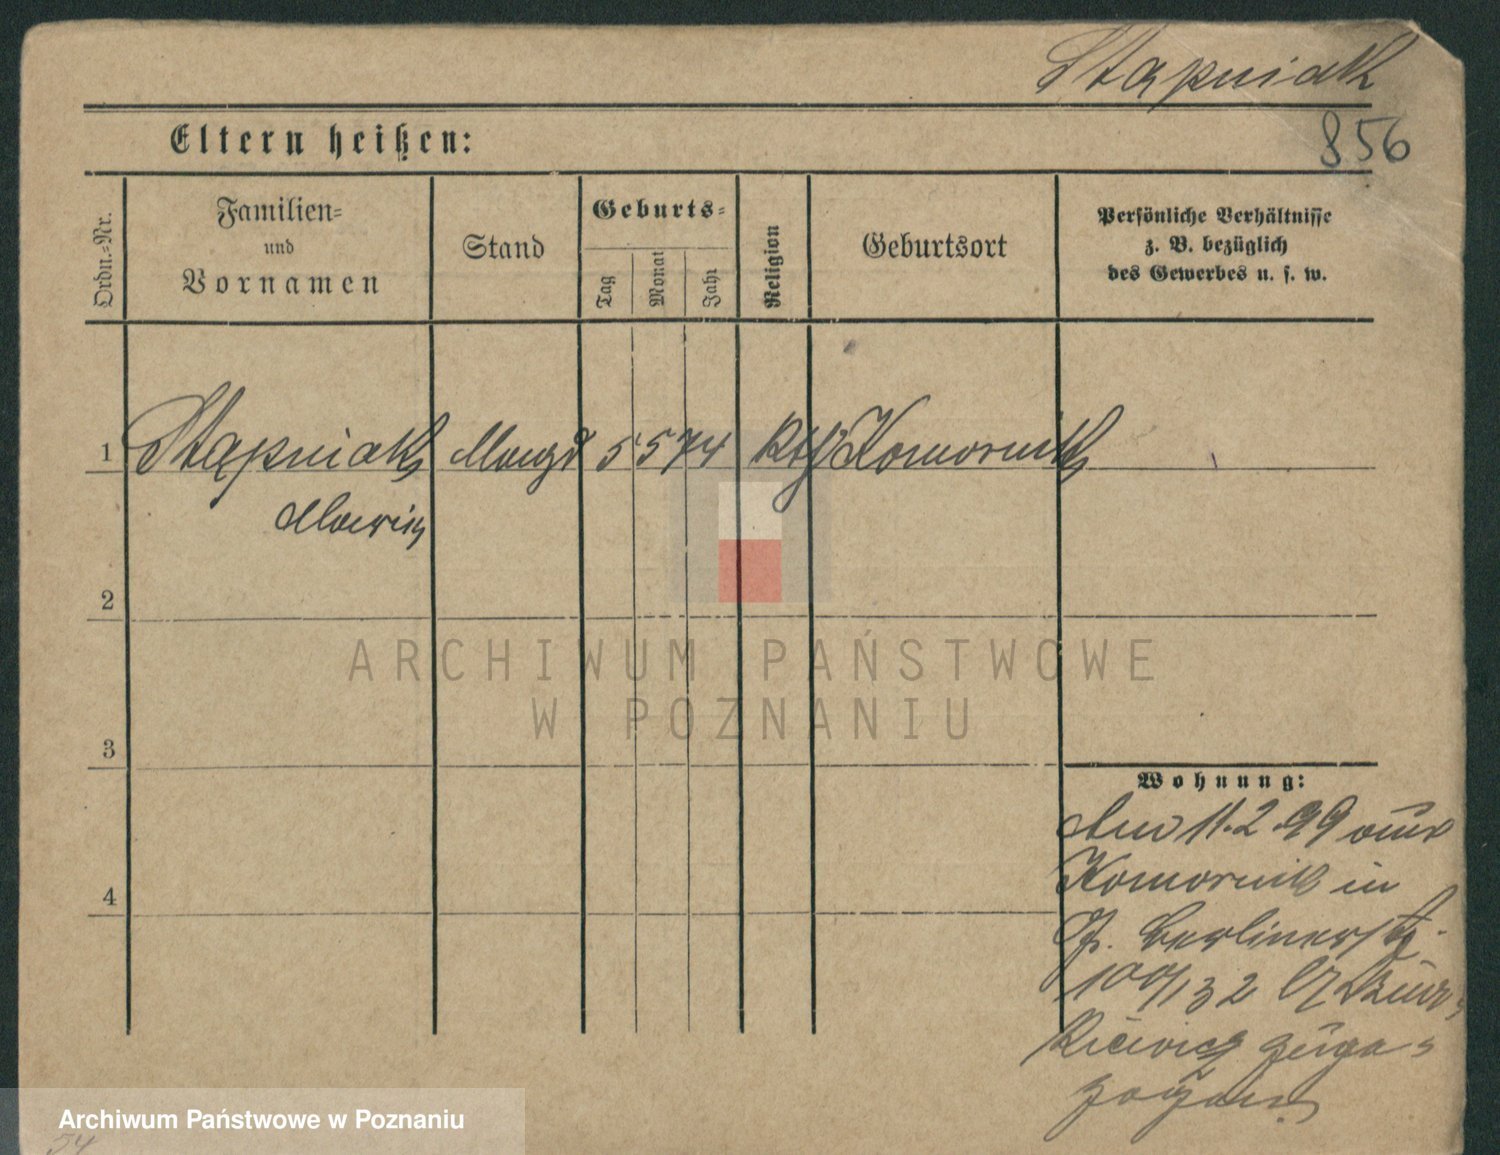 Stąpniak
Eltern heißen:
856
Ordn.-Nr.
Familien-
und
Vornamen
Stand
Geburts-
Tag
Monat
Jahr
Religion
Geburtsort
Persönliche Verhältnisse
z. B. bezüglich
des Gewerbes u. s. w.
1
Stąpniak
Magd
5
5
74
Kth
Komornik
2
3
4
ARCHIWUM PAŃSTWOWE
W POZNANIU
Wohnung:
Am 11.2.99 aus
Komornik in
P. Berlinerstr.
100/132
zuge-
zogen
Archiwum Państwowe w Poznaniu
54